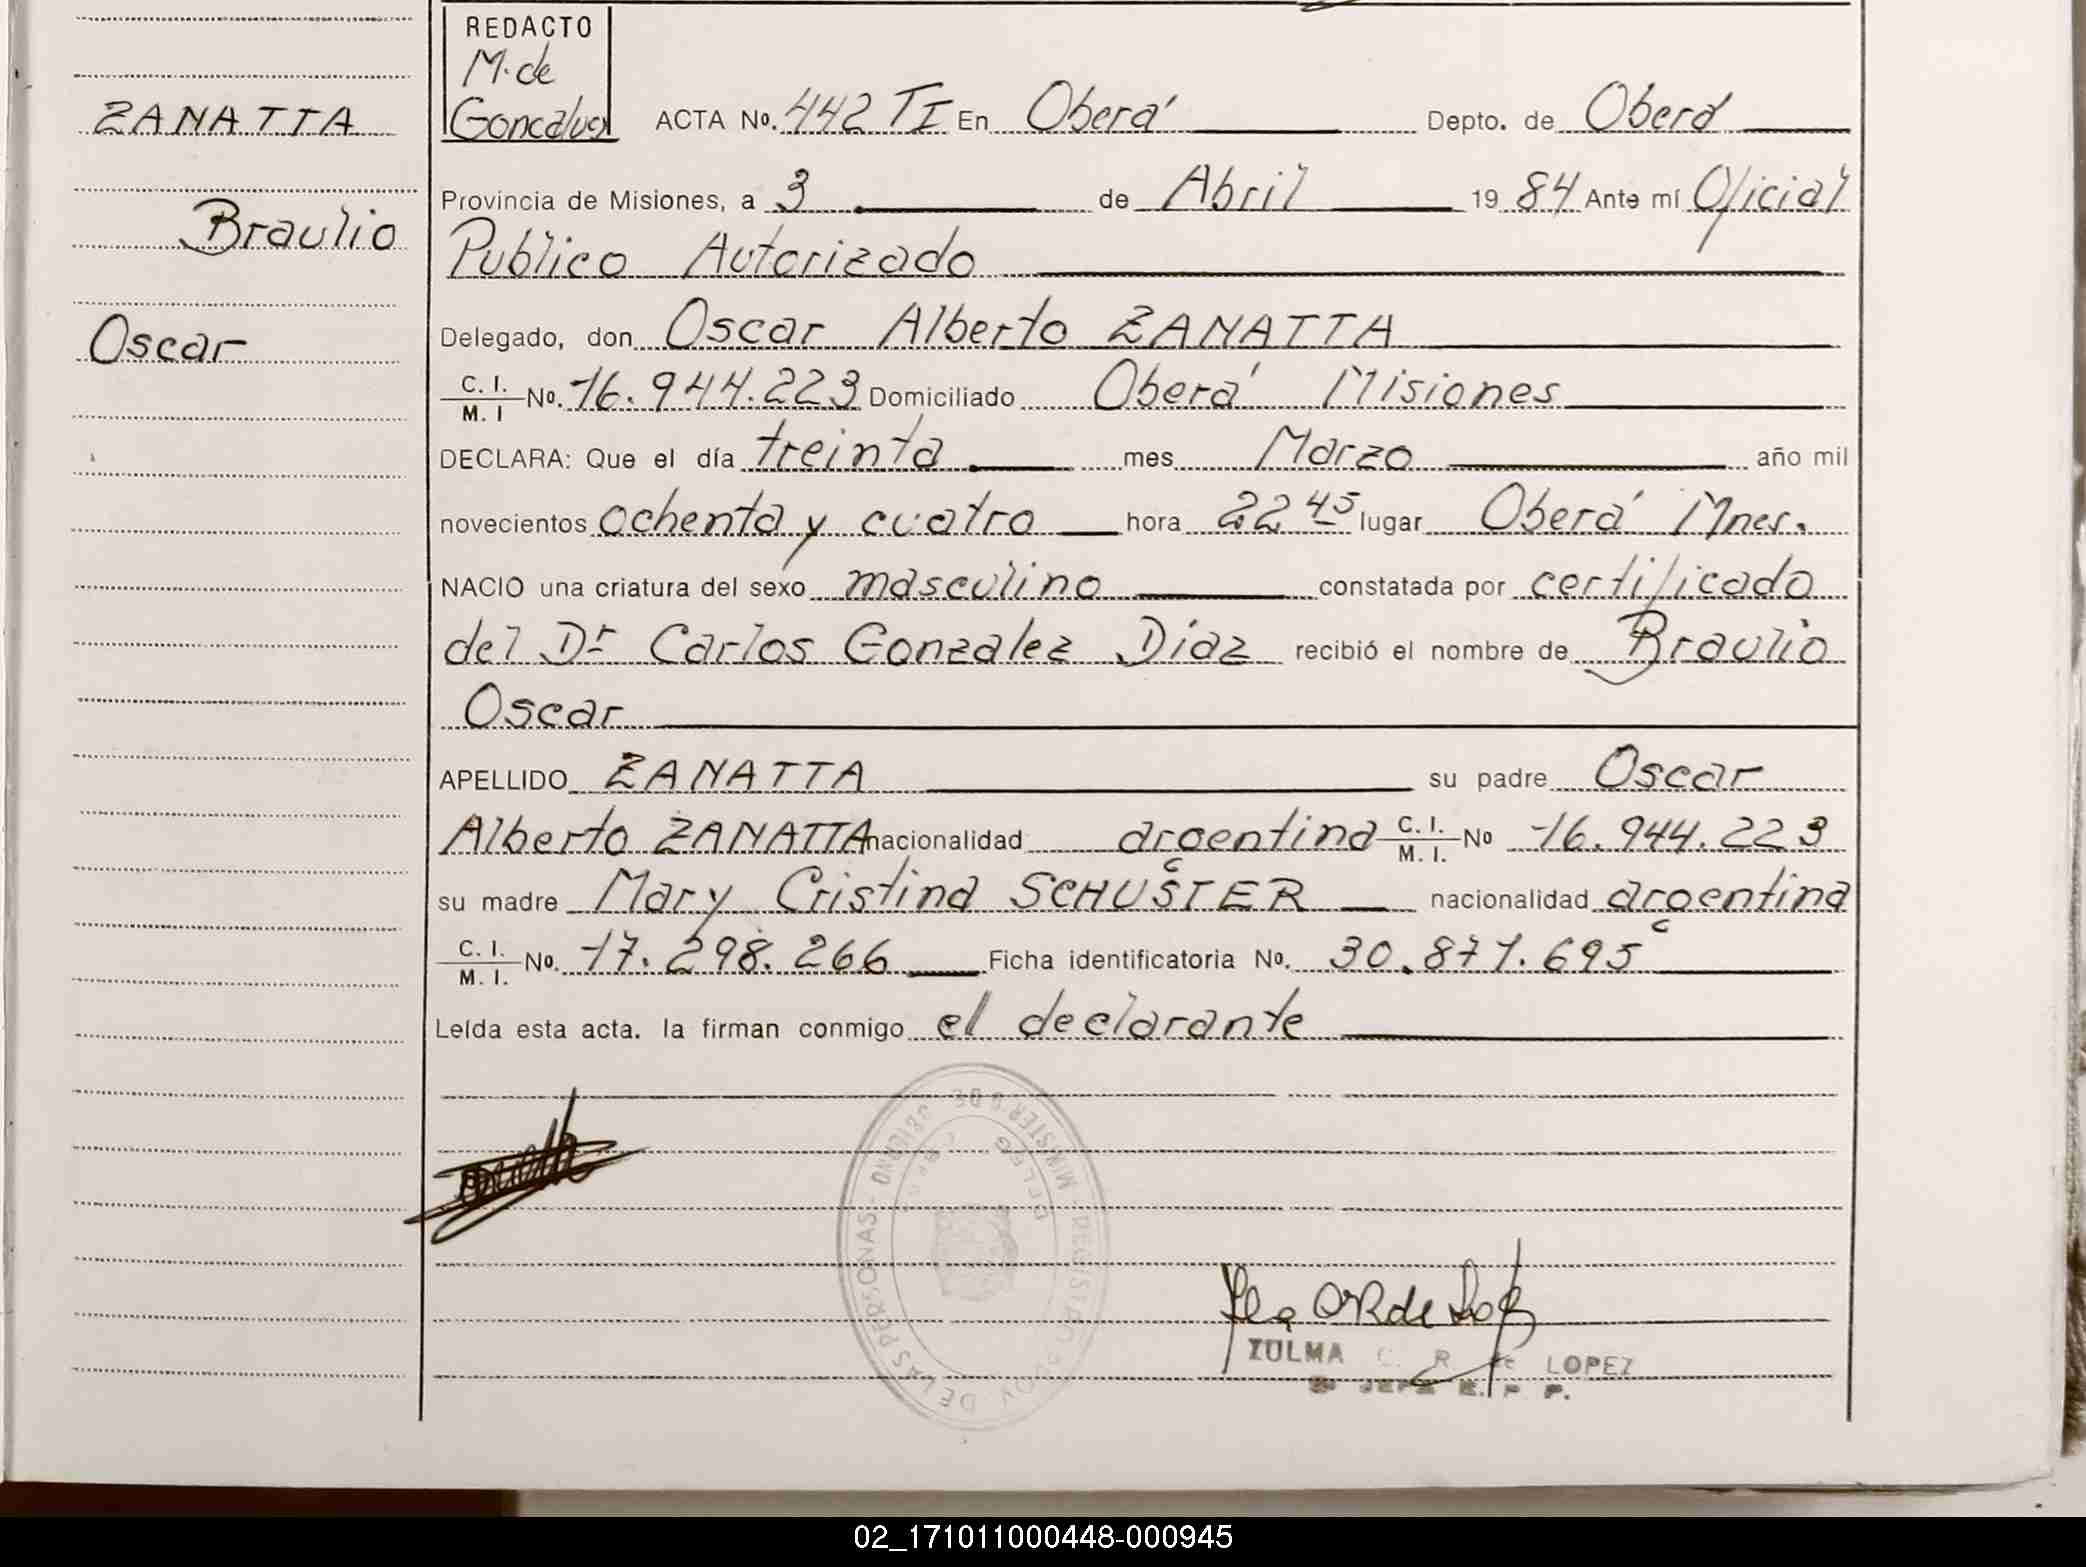 REDACTO
M. de
Goncalves
ZANATTA
Braulio
Oscar
ACTA No. 442 TI En Oberá Depto. de Oberá
Provincia de Misiones, a 3 de Abril 1984 Ante mí Oficial
Publico Autorizado
Delegado, don Oscar Alberto ZANATTA
C. I. / M. I No. 16.944.223 Domiciliado Oberá Misiones
DECLARA: Que el día treinta mes Marzo año mil
novecientos ochenta y cuatro hora 22 45 lugar Oberá Mnes.
NACIO una criatura del sexo masculino constatada por certificado
del Dr Carlos Gonzalez Diaz recibió el nombre de Braulio
Oscar
APELLIDO ZANATTA su padre Oscar
Alberto ZANATTA nacionalidad argentina C. I. / M. I. No 16.944.223
su madre Mary Cristina SCHUSTER nacionalidad argentina
C. I. / M. I. No. 17.298.266 Ficha identificatoria No. 30.871.695
Leída esta acta. la firman conmigo el declarante
REGISTRO PROV DE LAS PERSONAS
ZULMA C. R. de LOPEZ
JEFE
02_171011000448-000945